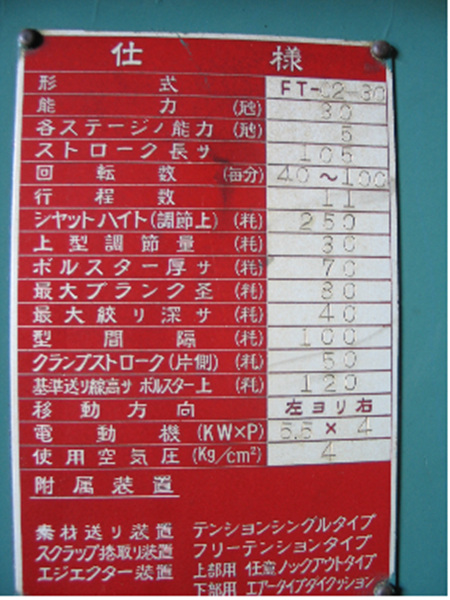 仕様
形式 FT-C2-30
能力 (瓲) 30
各ステージノ能力 (瓲) 5
ストローク長サ 105
回転数 (毎分) 40～100
行程数 11
シヤットハイト(調節上) (粍) 250
上型調節量 (粍) 30
ボルスター厚サ (粍) 70
最大ブランク圣 (粍) 80
最大絞リ深サ (粍) 40
型間隔 (粍) 100
クランプストローク(片側) (粍) 50
基準送リ線高サ ボルスター上 (粍) 120
移動方向 左ヨリ右
電動機 (KW×P) 5.5 × 4
使用空気圧 (Kg/cm²) 4
附属装置
素材送リ装置 テンションシングルタイプ
スクラップ捲取リ装置 フリーテンションタイプ
エジェクター装置 上部用 任意ノックアウトタイプ
下部用 エアータイプダイクッション